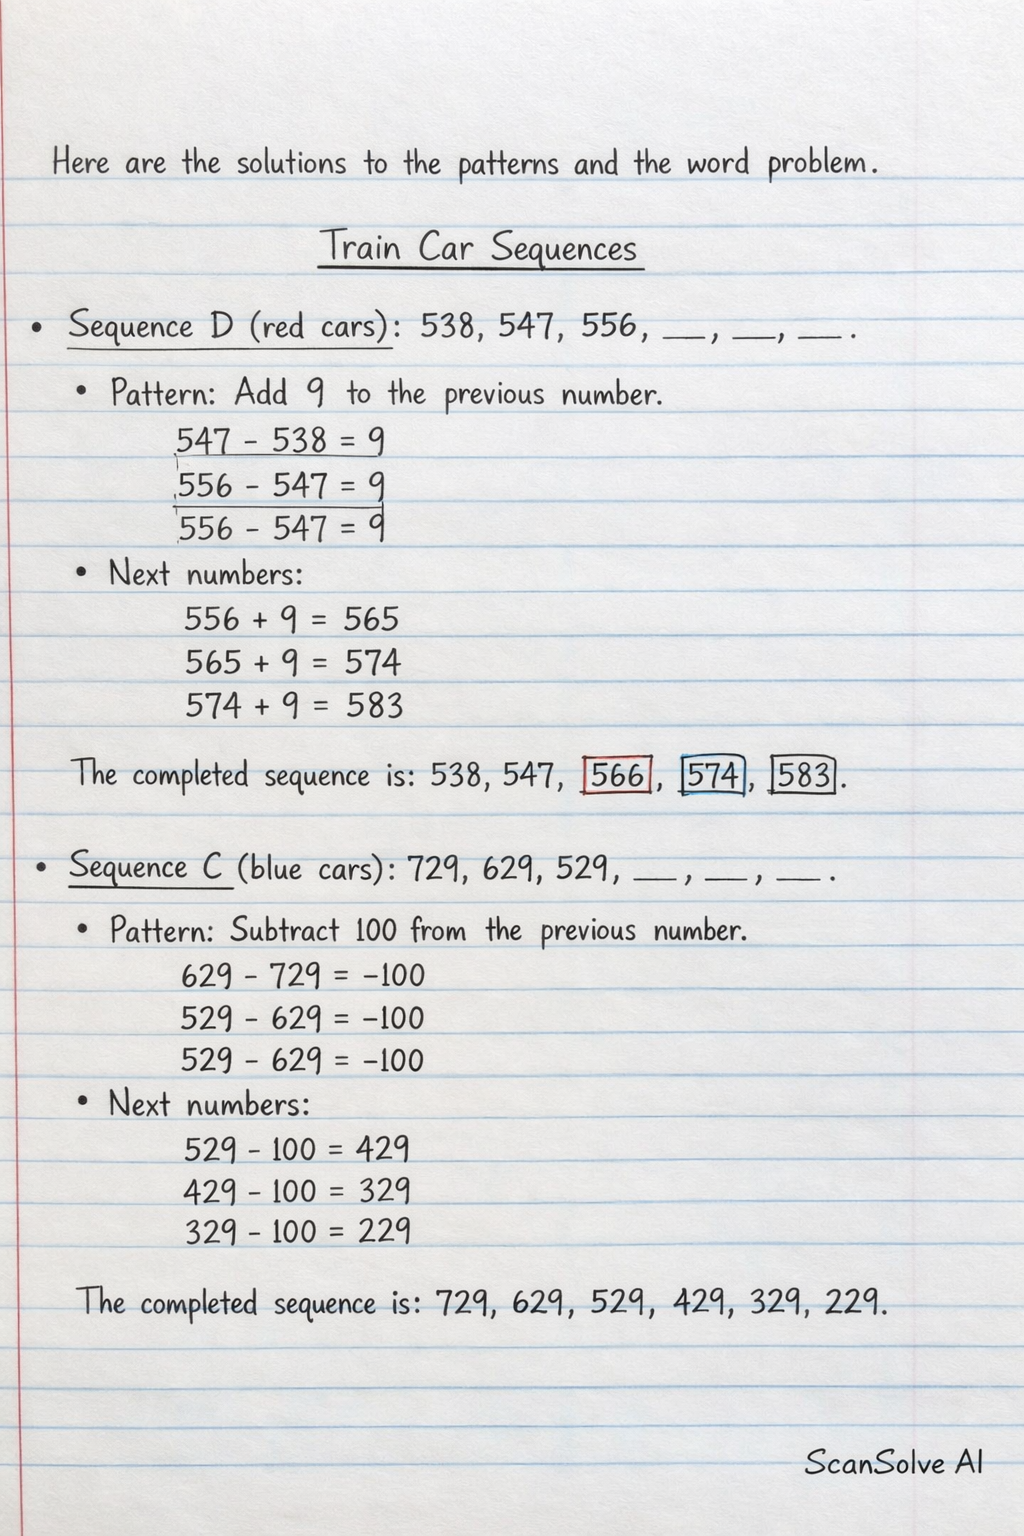 Here are the solutions to the patterns and the word problem.
Train Car Sequences
• Sequence D (red cars): 538, 547, 556, __, __, __.
• Pattern: Add 9 to the previous number.
547 - 538 = 9
556 - 547 = 9
556 - 547 = 9
• Next numbers:
556 + 9 = 565
565 + 9 = 574
574 + 9 = 583
The completed sequence is: 538, 547, 566, 574, 583.
• Sequence C (blue cars): 729, 629, 529, __, __, __.
• Pattern: Subtract 100 from the previous number.
629 - 729 = -100
529 - 629 = -100
529 - 629 = -100
• Next numbers:
529 - 100 = 429
429 - 100 = 329
329 - 100 = 229
The completed sequence is: 729, 629, 529, 429, 329, 229.
ScanSolve AI